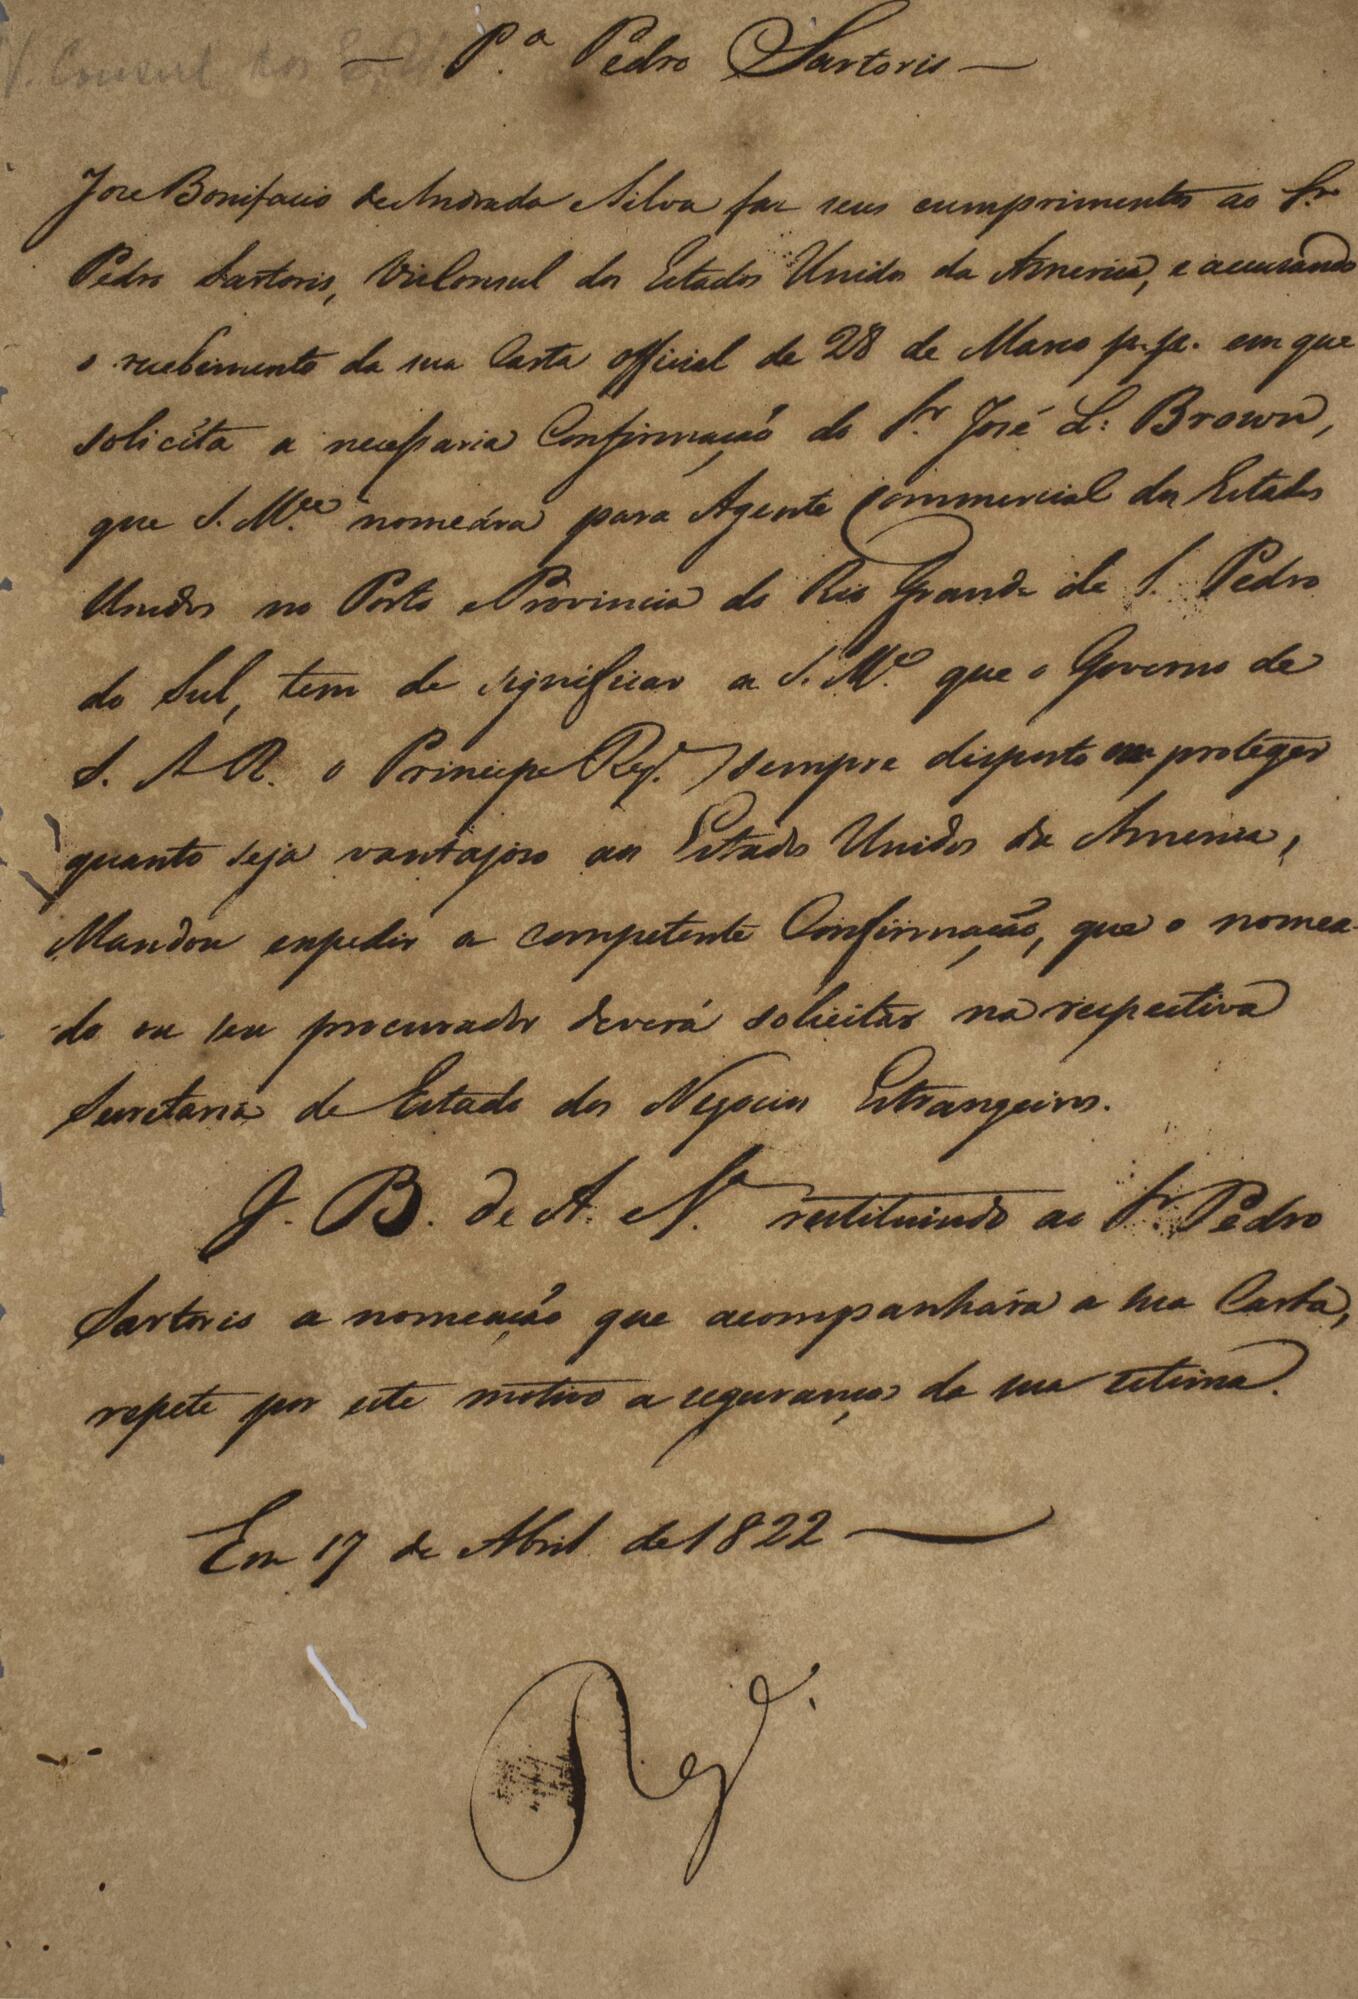 V. Consul dos E.
— P.ª Pedro Sartoris —
Jozé Bonifacio de Andrada e Silva faz seus cumprimentos ao Sr.
Pedro Sartoris, ViceConsul dos Estados Unidos da America, e accusando
o recebimento da sua Carta official de 28 de Março p.p. em que
solicita a necessaria Confirmação do Sr. José L: Brown,
que S. M.ce nomeára para Agente Commercial dos Estados
Unidos no Porto e Provincia do Rio Grande de S. Pedro
do Sul, tem de significar a S. M.ce que o Governo de
S. A R. o Principe Reg.e sempre disposto em proteger
quanto seja vantajoso aos Estados Unidos da America,
Mandou expedir a competente Confirmação, que o nomea-
do ou seu procurador deverá solicitar na respectiva
Secretaria de Estado dos Negocios Estrangeiros.
J. B. de A. e S.ª restituindo ao Sr. Pedro
Sartoris a nomeação que acompanhára a sua Carta,
repete por este motivo a segurança da sua estima.
Em 17 de Abril de 1822 —
Reg.